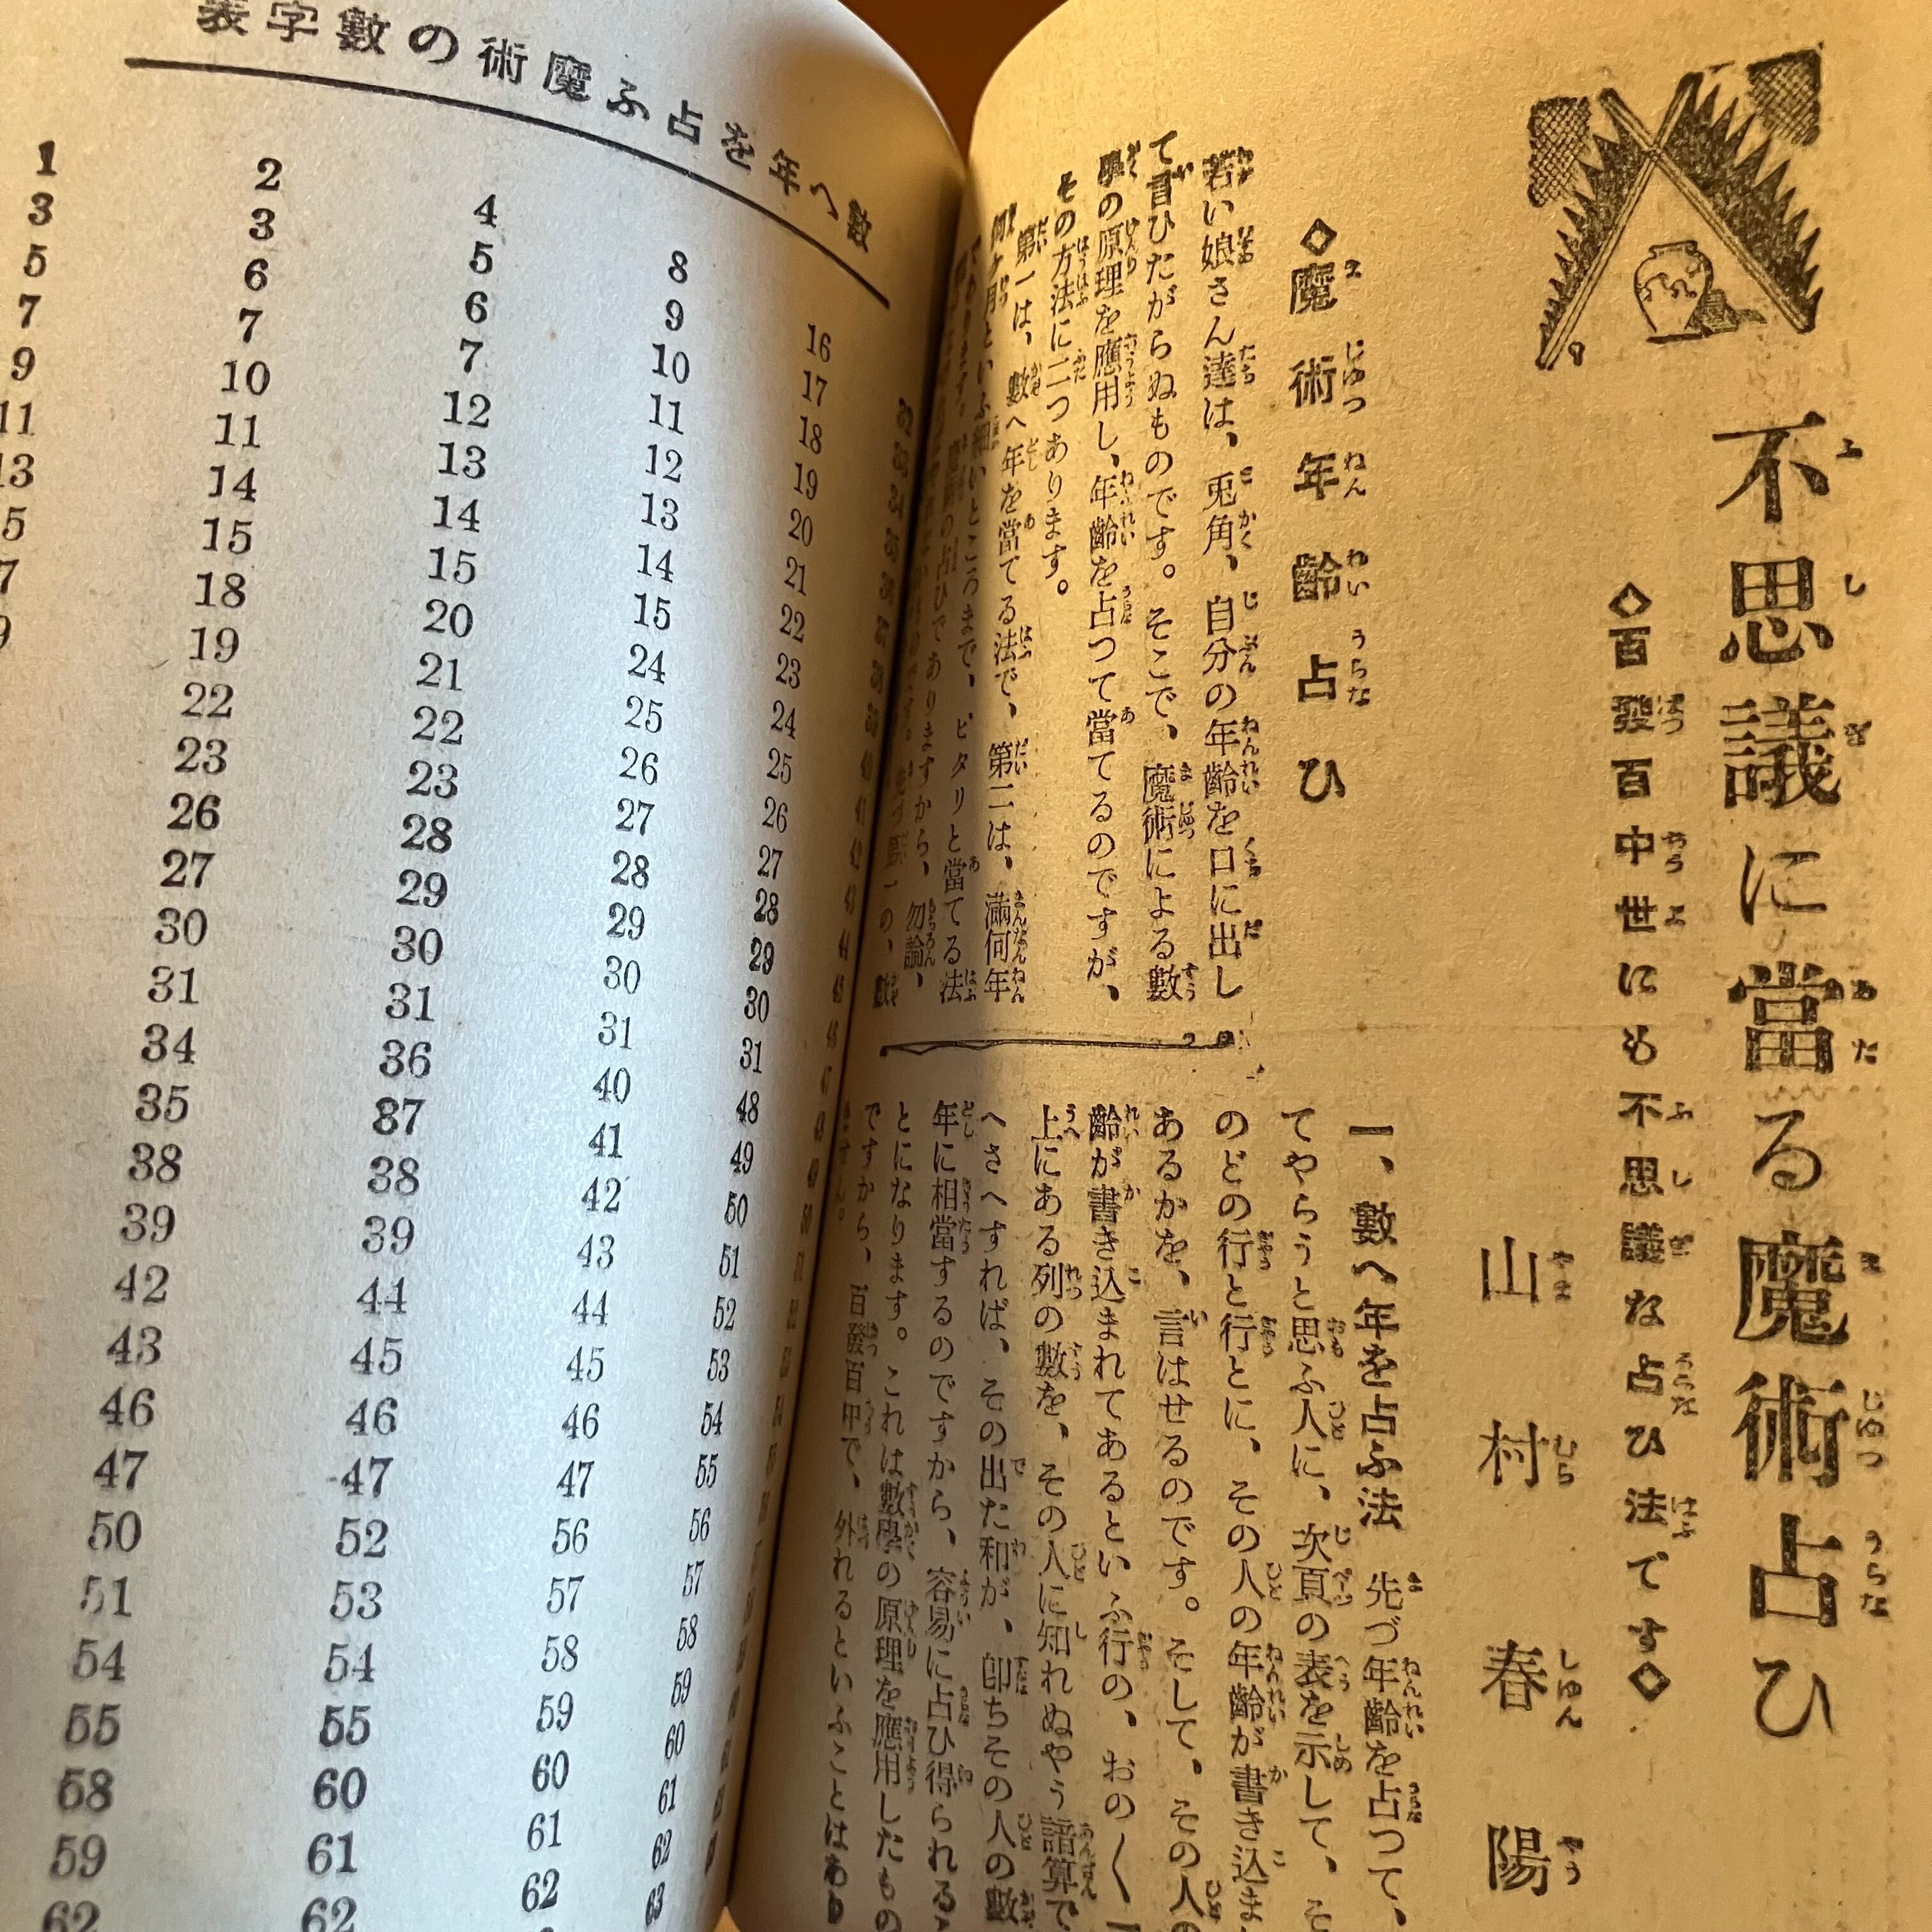 不思議に當る魔術占ひ
◇百發百中世にも不思議な占ひ法です◇
山村春陽
◇魔術年齡占ひ
若い娘さん達は、兎角、自分の年齡を口に出し
て言ひたがらぬものです。そこで、魔術による數
學の原理を應用し、年齡を占つて當てるのですが、
その方法に二つあります。
第一は、數へ年を當てる法で、第二は、滿何年
何ケ月といふ細いところまで、ピタリと當てる法
の占ひでありますから、勿論、
第一の、數
一、數へ年を占ふ法 先づ年齡を占つて、
てやらうと思ふ人に、次頁の表を示して、そ
のどの行と行とに、その人の年齡が書き込ま
あるかを、言はせるのです。そして、その人の
齡が書き込まれてあるといふ行の、おの〱
上にある列の數を、その人に知れぬやう諳算で
へさへすれば、その出た和が、卽ちその人の數
年に相當するのですから、容易に占ひ得られる
とになります。これは數學の原理を應用したもの
ですから、百發百中で、外れるといふことはあり
ません。
數へ年を占ふ魔術の數字表
16
17
18
19
20
21
22
23
24
25
26
27
28
29
30
31
48
49
50
51
52
53
54
55
56
57
58
59
60
61
62
63
8
9
10
11
12
13
14
15
24
25
26
27
28
29
30
31
40
41
42
43
44
45
46
47
56
57
58
59
60
61
62
4
5
6
7
12
13
14
15
20
21
22
23
28
29
30
31
36
37
38
39
44
45
46
47
52
53
54
55
60
61
62
2
3
6
7
10
11
14
15
18
19
22
23
26
27
30
31
34
35
38
39
42
43
46
47
50
51
54
55
58
59
62
1
3
5
7
9
11
13
5
7
9